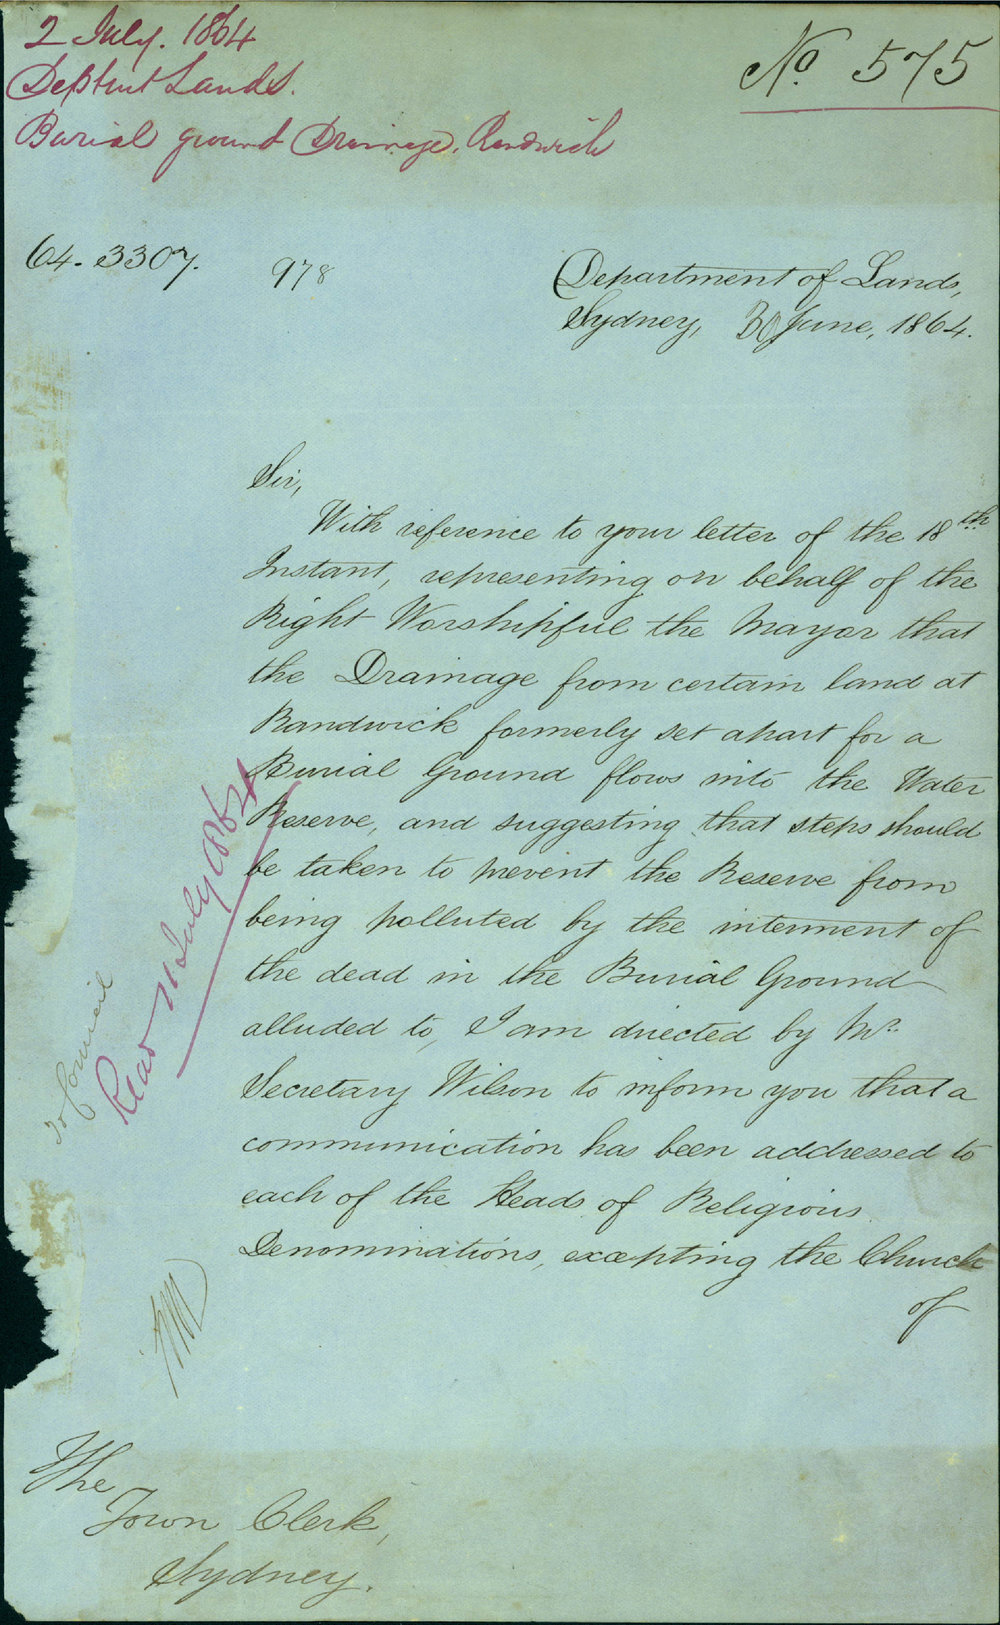 2 July. 1864
No 575
Deptmt Lands.
Burial ground Drainage, Randwick
64-3307. 978
Department of Lands,
Sydney, 30 June, 1864.
Sir,
With reference to your letter of the 18th
Instant, representing on behalf of the
Right Worshipful the Mayor that
the Drainage from certain land at
Randwick formerly set apart for a
Burial Ground flows into the Water
Reserve, and suggesting that steps should
be taken to prevent the Reserve from
being polluted by the interment of
the dead in the Burial Ground
alluded to, I am directed by Mr.
Secretary Wilson to inform you that a
communication has been addressed to
each of the Heads of Religious
Denominations, excepting the Church
of
To Council
Read 11 July 1864
The
Town Clerk,
Sydney.